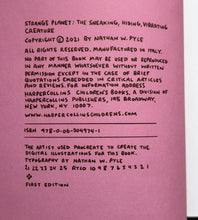 STRANGE PLANET: THE SNEAKING, HIDING, VIBRATING
CREATURE
COPYRIGHT © 2021 BY NATHAN W. PYLE
ALL RIGHTS RESERVED. MANUFACTURED IN ITALY.
NO PART OF THIS BOOK MAY BE USED OR REPRODUCED
IN ANY MANNER WHATSOEVER WITHOUT WRITTEN
PERMISSION EXCEPT IN THE CASE OF BRIEF
QUOTATIONS EMBEDDED IN CRITICAL ARTICLES
AND REVIEWS. FOR INFORMATION ADDRESS
HARPERCOLLINS CHILDREN'S BOOKS, A DIVISION OF
HARPERCOLLINS PUBLISHERS, 195 BROADWAY,
NEW YORK, NY 10007.
WWW.HARPERCOLLINSCHILDRENS.COM
ISBN 978-0-06-304974-1
THE ARTIST USED PROCREATE TO CREATE THE
DIGITAL ILLUSTRATIONS FOR THIS BOOK.
TYPOGRAPHY BY NATHAN W. PYLE
21 22 23 24 25 RTLO 10 9 8 7 6 5 4 3 2 1
FIRST EDITION